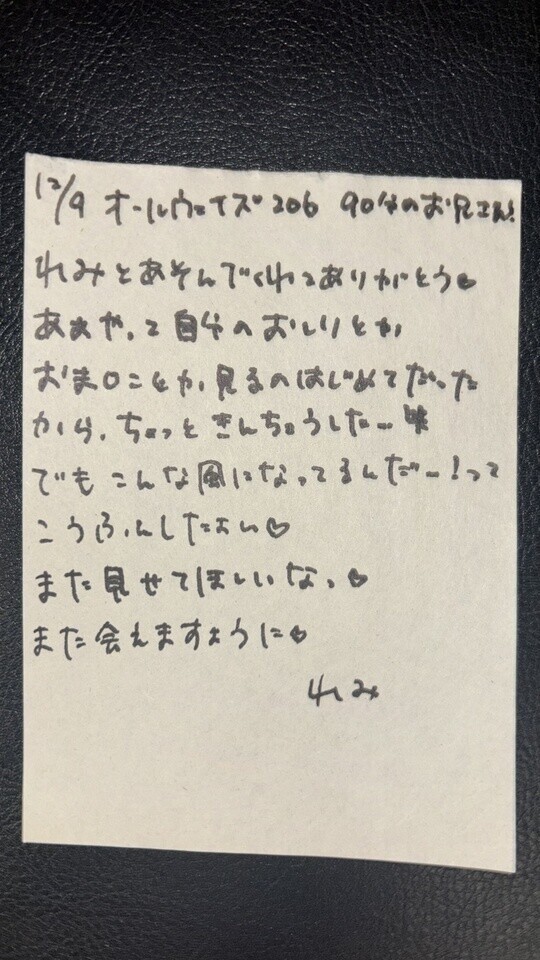 12/9 オールウェイズ206 90分のお兄さん!
れみとあそんでくれてありがとう♥
ああやって自分のおしりとか
おま○ことか、見るのはじめてだった
から、ちょっときんちょうしたー
でもこんな風になってるんだー!って
こうふんしたよい♡
また見せてほしいなっ♥
また会えますように♥
れみ